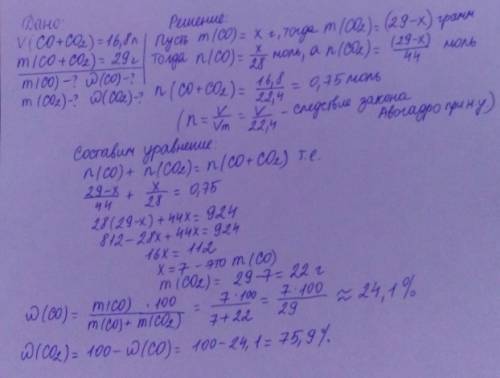 Дано:
V(CO+CO₂)=16,8л
m(CO+CO₂)=29г
m(CO)-? ω(CO)-?
m(CO₂)-? ω(CO₂)-?
Решение:
Пусть m(CO)=x г, тогда m(CO₂)=(29-x) грамм
Тогда n(CO)=x/28 моль, а n(CO₂)=(29-x)/44 моль
n(CO+CO₂)=16,8/22,4=0,75 моль
(n=V/Vm=V/22,4 - следствие закона
Авогадро при н.у)
Составим уравнение:
n(CO)+n(CO₂)=n(CO+CO₂) т.е.
(29-x)/44 + x/28 = 0,75
28(29-x)+44x=924
812-28x+44x=924
16x=112
x=7 - это m(CO)
m(CO₂)= 29-7=22 г
ω(CO)= m(CO)·100/(m(CO)+m(CO₂)) = 7·100/(7+22) = 7·100/29 ≈ 24,1%
ω(CO₂)=100-ω(CO)=100-24,1=75,9%.